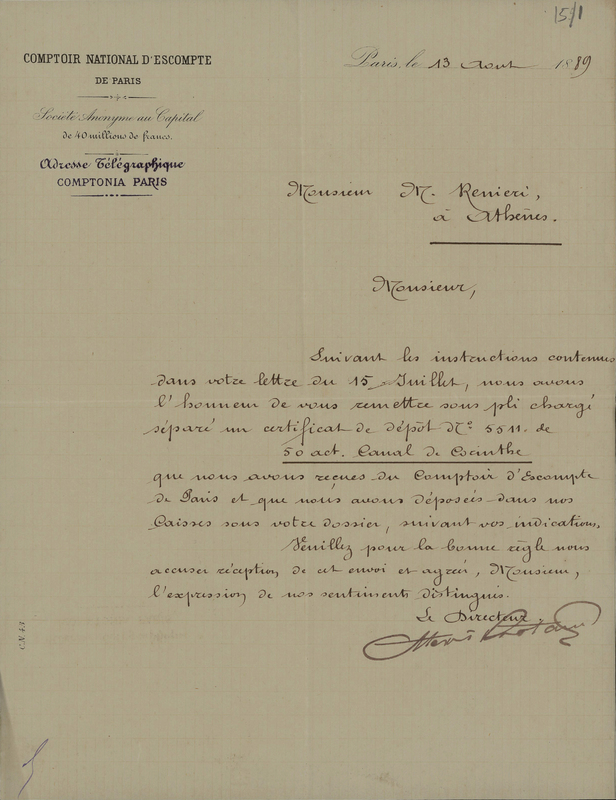 15/1
COMPTOIR NATIONAL D'ESCOMPTE
DE PARIS
Société Anonyme au Capital
de 40 millions de francs.
Adresse Télégraphique
COMPTONIA PARIS
Paris, le 13 Aout 1889
Monsieur M. Renieri,
à Athènes.
Monsieur,
Suivant les instructions contenues
dans votre lettre du 15 Juillet, nous avons
l'honneur de vous remettre sous pli chargé
séparé un certificat de dépôt No. 5511. de
50 act. Canal de Corinthe
que nous avons reçues du Comptoir d'Escompte
de Paris et que nous avons déposées dans nos
Caisses sous votre dossier, suivant vos indications.
Veuillez pour la bonne règle nous
accuser réception de cet envoi et agréer, Monsieur,
l'expression de nos sentiments distingués.
Le Directeur.